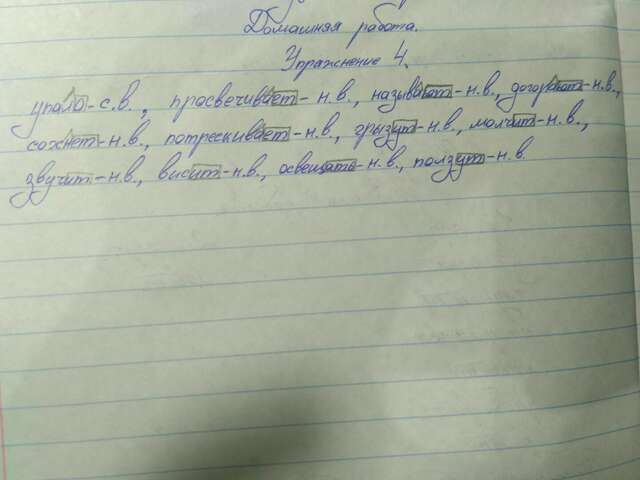 Домашняя работа.
Упражнение 4.
упало - с.в., просвечивает - н.в., называют - н.в., догорают - н.в.,
сохнет - н.в., потрескивает - н.в., грызут - н.в., молчит - н.в.,
звучит - н.в., висит - н.в., освещать - н.в., ползут - н.в.